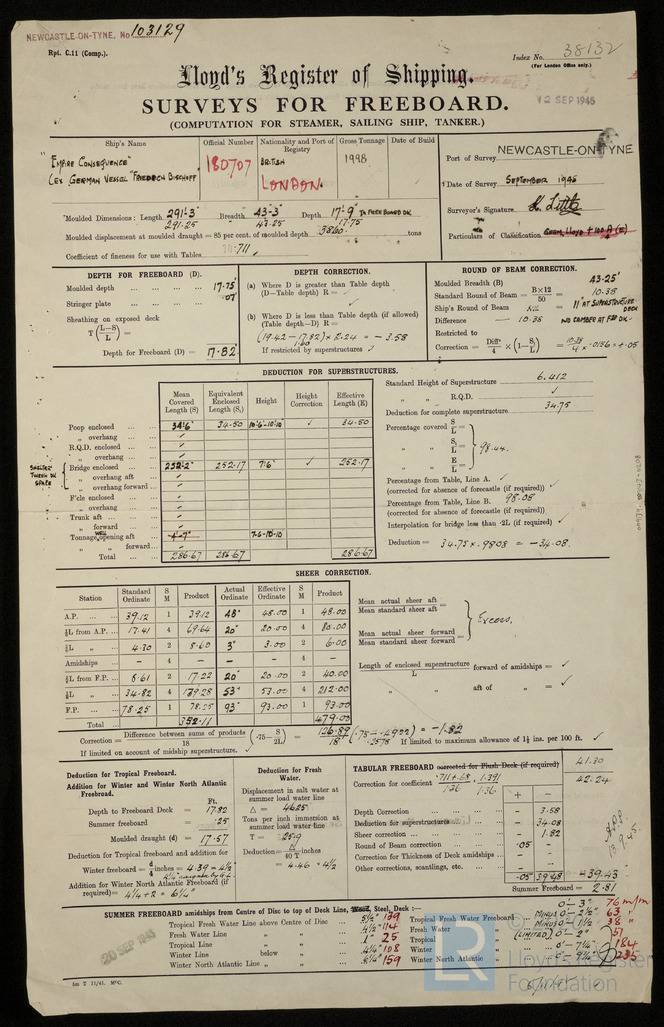 NEWCASTLE-ON-TYNE, No 103129
Rpt. C.11 (Comp.).
Index No. 38132
(For London Office only.)
Lloyd's Register of Shipping.
12 SEP 1945
SURVEYS FOR FREEBOARD.
(COMPUTATION FOR STEAMER, SAILING SHIP, TANKER.)
Ship's Name
Official Number
Nationality and Port of Registry
Gross Tonnage
Date of Build
"EMPIRE CONSEQUENCE"
(EX GERMAN VESSEL "FRIEDRICH BISCHOFF
180707
BRITISH
LONDON.
1998
Port of Survey NEWCASTLE-ON-TYNE
Date of Survey SEPTEMBER 1945
Surveyor's Signature
Particulars of Classification
Moulded Dimensions: Length 291'-3" Breadth 43'-3" Depth 17'-9" TO FREEBOARD DK
291.25 43.25 17.75
Moulded displacement at moulded draught = 85 per cent. of moulded depth 3860 tons
Coefficient of fineness for use with Tables .711
DEPTH FOR FREEBOARD (D).
Moulded depth 17.75
Stringer plate .07
Sheathing on exposed deck
T(L-S/L) =
Depth for Freeboard (D) = 17.82
DEPTH CORRECTION.
(a) Where D is greater than Table depth
(D—Table depth) R =
(b) Where D is less than Table depth (if allowed)
(Table depth—D) R =
(19.42 - 17.82) × 2.24 = - 3.58
1.60
If restricted by superstructures ✓
ROUND OF BEAM CORRECTION.
Moulded Breadth (B) 43.25'
Standard Round of Beam = B×12/50 = 10.38
Ship's Round of Beam = Nil 11" AT SUPERSTRUCTURE DECK
Difference 10.38 NO CAMBER AT FBD DK
Restricted to
Correction = Diff/4 × (1-S1/L) = 10.38/4 × .0156 = +.05
DEDUCTION FOR SUPERSTRUCTURES.
Mean Covered Length (S)
Equivalent Enclosed Length (S1)
Height
Height Correction
Effective Length (E)
Poop enclosed 34'6" 34.50 10'6"-10'10 ✓ 34.50
" overhang ✓
R.Q.D. enclosed ✓
" overhang ✓
SHELTER TWEEN DK SPACE
Bridge enclosed 252'2" 252.17 7'6" ✓ 252.17
" overhang aft ✓
" overhang forward ✓
F'cle enclosed ✓
" overhang ✓
Trunk aft ✓
" forward ✓
Tonnage opening aft 4'-7" 7-6-10-10
WELL
" " forward
Total 286.67 286.67 286.67
Standard Height of Superstructure 6.412
" " R.Q.D. ✓
Deduction for complete superstructure 34.75
Percentage covered S/L
" " S1/L = 98.44.
" " E/L
Percentage from Table, Line A. ✓
(corrected for absence of forecastle (if required))
Percentage from Table, Line B. 98.08
(corrected for absence of forecastle (if required))
Interpolation for bridge less than ·2L (if required) ✓
Deduction = 34.75 × .9808 = -34.08.
SHEER CORRECTION.
Station
Standard Ordinate
S M
Product
Actual Ordinate
Effective Ordinate
S M
Product
A.P. 39.12 1 39.12 48" 48.00 1 48.00
⅙L from A.P. 17.41 4 69.64 20" 20.00 4 80.00
⅓L " 4.30 2 8.60 3" 3.00 2 6.00
Amidships - 4 - - - 4 -
⅓L from F.P. 8.61 2 17.22 20" 20.00 2 40.00
⅙L " 34.82 4 139.28 53" 53.00 4 212.00
F.P. 78.25 1 78.25 93" 93.00 1 93.00
Total 352.11 479.00
Mean actual sheer aft
Mean standard sheer aft =
Mean actual sheer forward
Mean standard sheer forward =
Excess.
Length of enclosed superstructure/L forward of amidships = ✓
" " aft of " = ✓
Correction = Difference between sums of products/18 (·75-S/2L) = 126.89/18 (.75-.4922) = -1.82
.2578
If limited on account of midship superstructure. ✓
If limited to maximum allowance of 1½ ins. per 100 ft. ✓
Deduction for Tropical Freeboard.
Addition for Winter and Winter North Atlantic Freeboard.
Ft.
Depth to Freeboard Deck = 17.82
Summer freeboard = .25
Moulded draught (d) = 17.57
Deduction for Tropical freeboard and addition for
Winter freeboard = d/4 inches = 4.39 = 4½"
Addition for Winter North Atlantic Freeboard (if required) = 4¼ + 2 = 6¼"
Deduction for Fresh Water.
Displacement in salt water at summer load water line
Δ = 4625
Tons per inch immersion at summer load water line
T = 25.9
Deduction = Δ/40 T inches
= 4.46 = 4½
TABULAR FREEBOARD corrected for Flush Deck (if required) 41.30
Correction for coefficient .711+.68/1.36 1.391/1.36 42.24
+ -
Depth Correction - 3.58
Deduction for superstructures - 34.08
Sheer correction - 1.82
Round of Beam correction .05 -
Correction for Thickness of Deck amidships - -
Other corrections, scantlings, etc. - -
.05 39.48 -39.43
Summer Freeboard = 2.81
SUMMER FREEBOARD amidships from Centre of Disc to top of Deck Line, Wood, Steel, Deck:— 0'- 3" 76 m/m
Tropical Fresh Water Line above Centre of Disc 5½" 139 Tropical Fresh Water Freeboard MINUS 0'- 2½" 63 "
Fresh Water Line " " 4½" 114 Fresh Water " MINUS 0'- 1½" 38 "
Tropical Line " " 1" 25 Tropical " (LIMITED) 0'- 2" 51
Winter Line below " 4¼" 108 Winter " 0'- 7¼" 184
Winter North Atlantic Line " " 6¼" 159 Winter North Atlantic " 0'- 9¼" 235
20 SEP 1945
5m T 11/41. McC.
© LR
Lloyd's Register
Foundation